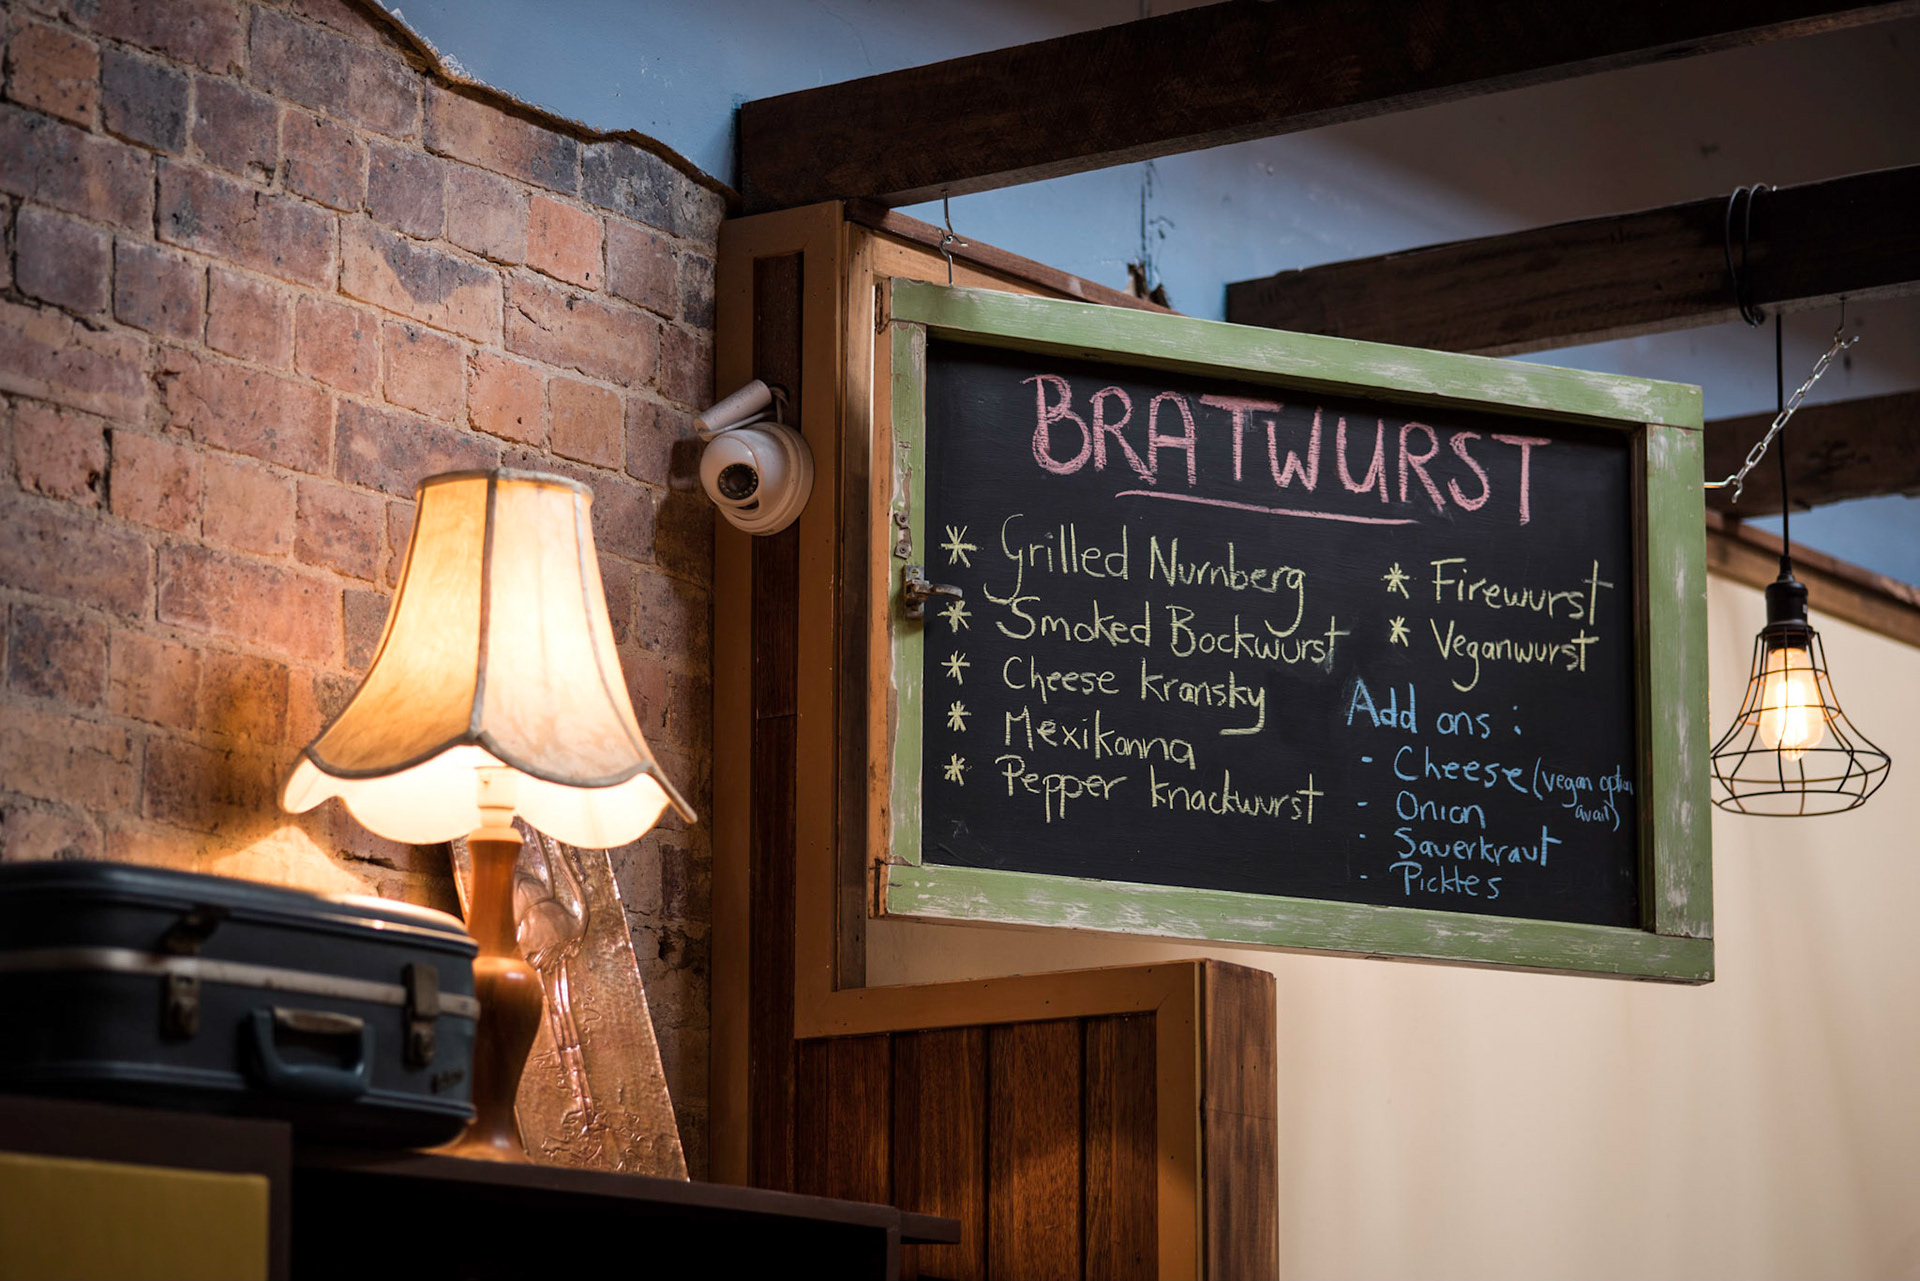 BRATWURST
* Grilled Nurnberg
* Smoked Bockwurst
* Cheese Kransky
* Mexikanna
* Pepper Knackwurst
* Firewurst
* Veganwurst
Add ons :
- Cheese (vegan option
avail)
- Onion
- Sauerkraut
- Pickles